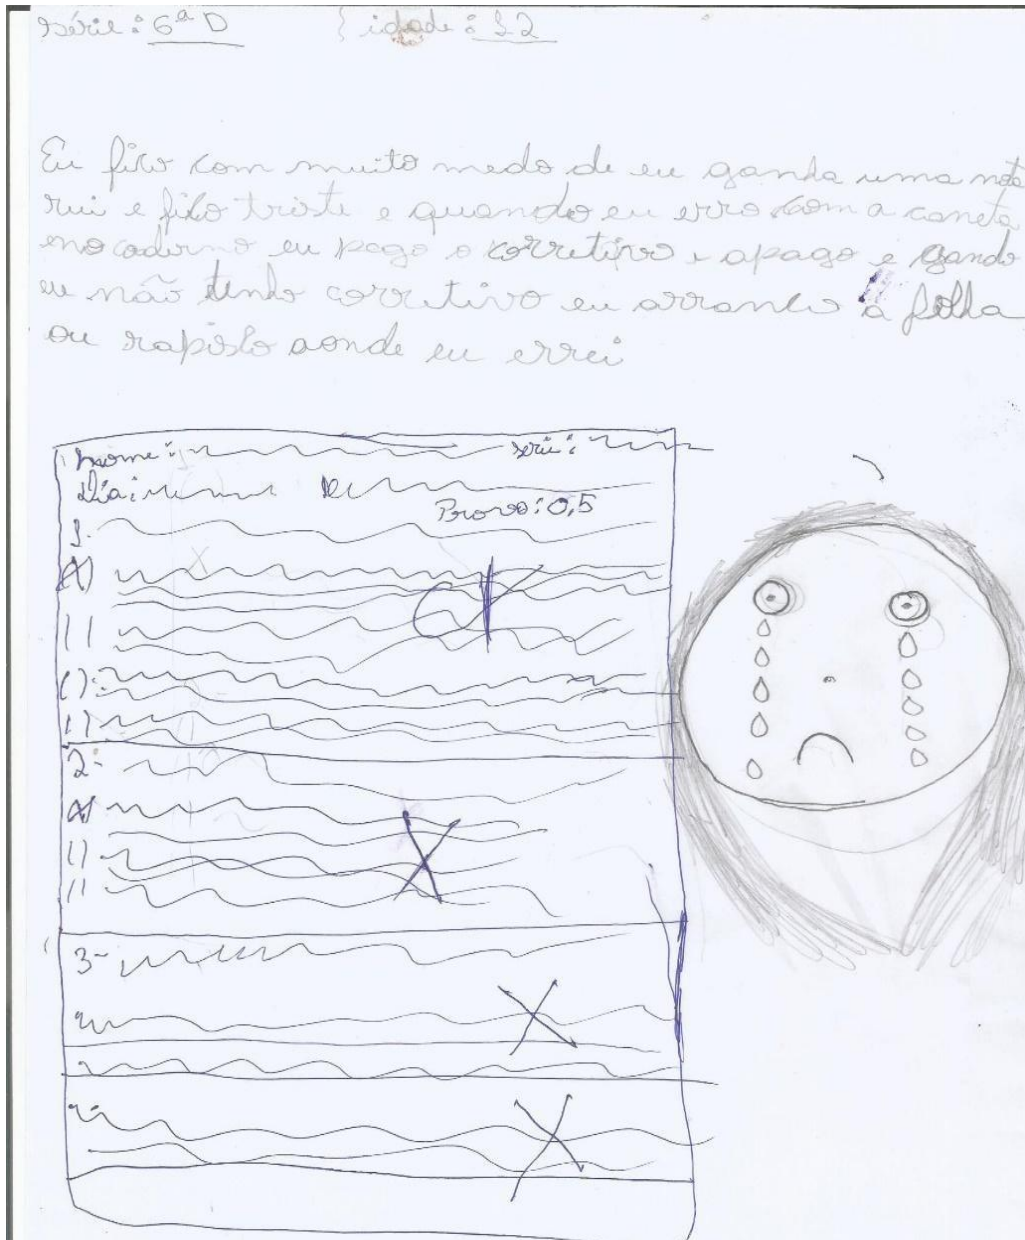 série: 6ª D idade: 12
Eu fico com muito medo de eu ganha uma nota
rui e fico triste e quando eu erro com a caneta
eno caderno eu pego o corretivo e apago e qando
eu não tenho corretivo eu arranco a folha
ou rapisto aonde eu errei
nome: serie:
Dia:
Prova: 0,5
1-
(X)
( )
( ):
( )
2-
(X)
( )
( )
3-